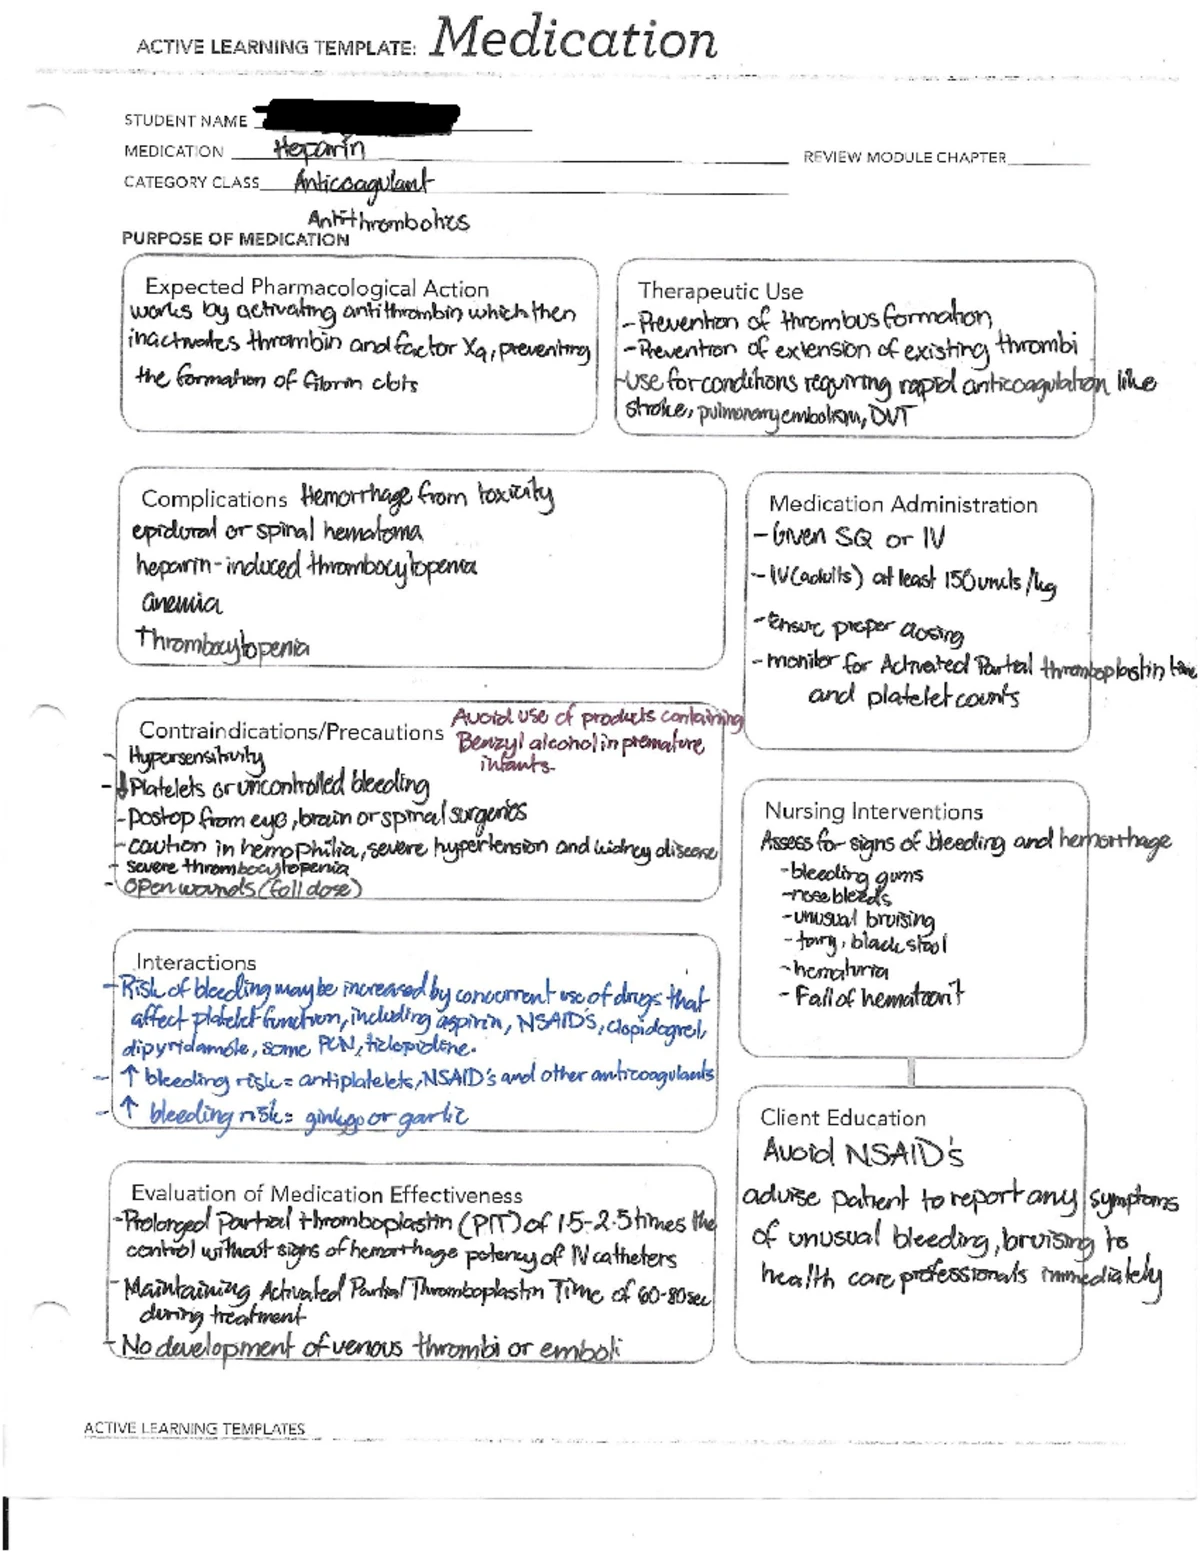 ACTIVE LEARNING TEMPLATE: Medication
STUDENT NAME
MEDICATION Heparin
REVIEW MODULE CHAPTER
CATEGORY CLASS Anticoagulant
Antithrombotics
PURPOSE OF MEDICATION
Expected Pharmacological Action
works by activating antithrombin which then
inactivates thrombin and factor Xa, preventing
the formation of fibrin clots
Therapeutic Use
- Prevention of thrombus formation
- Prevention of extension of existing thrombi
- Use for conditions requiring rapid anticoagulation like
stroke, pulmonary embolism, DVT
Complications Hemorrhage from toxicity
epidural or spinal hematoma
heparin-induced thrombocytopenia
anemia
Thrombocytopenia
Medication Administration
- Given SQ or IV
- IV (adults) at least 150 units/kg
- Ensure proper dosing
- monitor for Activated Partial thromboplastin time
and platelet counts
Contraindications/Precautions
Avoid use of products containing
Benzyl alcohol in premature
infants.
- Hypersensitivity
- ↓ Platelets or uncontrolled bleeding
- Postop from eye, brain or spinal surgeries
- caution in hemophilia, severe hypertension and kidney disease
- severe thrombocytopenia
- open wounds (full dose)
Nursing Interventions
Assess for signs of bleeding and hemorrhage
- bleeding gums
- nosebleeds
- unusual bruising
- tarry, black stool
- hematuria
- Fall of hematocrit
Interactions
- Risk of bleeding may be increased by concurrent use of drugs that
affect platelet function, including aspirin, NSAID's, clopidogrel,
dipyridamole, some PCN, ticlopidine.
- ↑ bleeding risk = antiplatelets, NSAID's and other anticoagulants
- ↑ bleeding risk = ginkgo or garlic
Client Education
Avoid NSAID's
advise patient to report any symptoms
of unusual bleeding, bruising to
health care professionals immediately
Evaluation of Medication Effectiveness
- Prolonged Partial thromboplastin (PTT) of 1.5-2.5 times the
control without signs of hemorrhage potency of IV catheters
- Maintaining Activated Partial Thromboplastin Time of 60-80 sec
during treatment
- No development of venous thrombi or emboli
ACTIVE LEARNING TEMPLATES